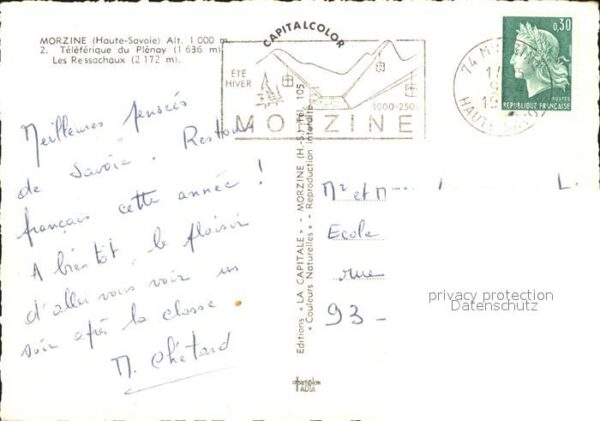 MORZINE (Haute-Savoie) Alt. 1 000 m.
2. Téléférique du Plénay (1 636 m)
Les Ressachaux (2 172 m).
CAPITALCOLOR
ÉTÉ
HIVER
1000-250
MORZINE
74 M
HAUTE
0,30
POSTES
REPUBLIQUE FRANÇAISE
Meilleures pensées
de Savoie. Restons
français cette année !
A bientôt, le plaisir
d'aller vous voir un
soir après la classe.
M. Chétard
Editions « LA CAPITALE » - MORZINE (H.-S.) Tél. 105
« Couleurs Naturelles » - Reproduction interdite
Mr et M L.
Ecole
rue
93 -
privacy protection
Datenschutz